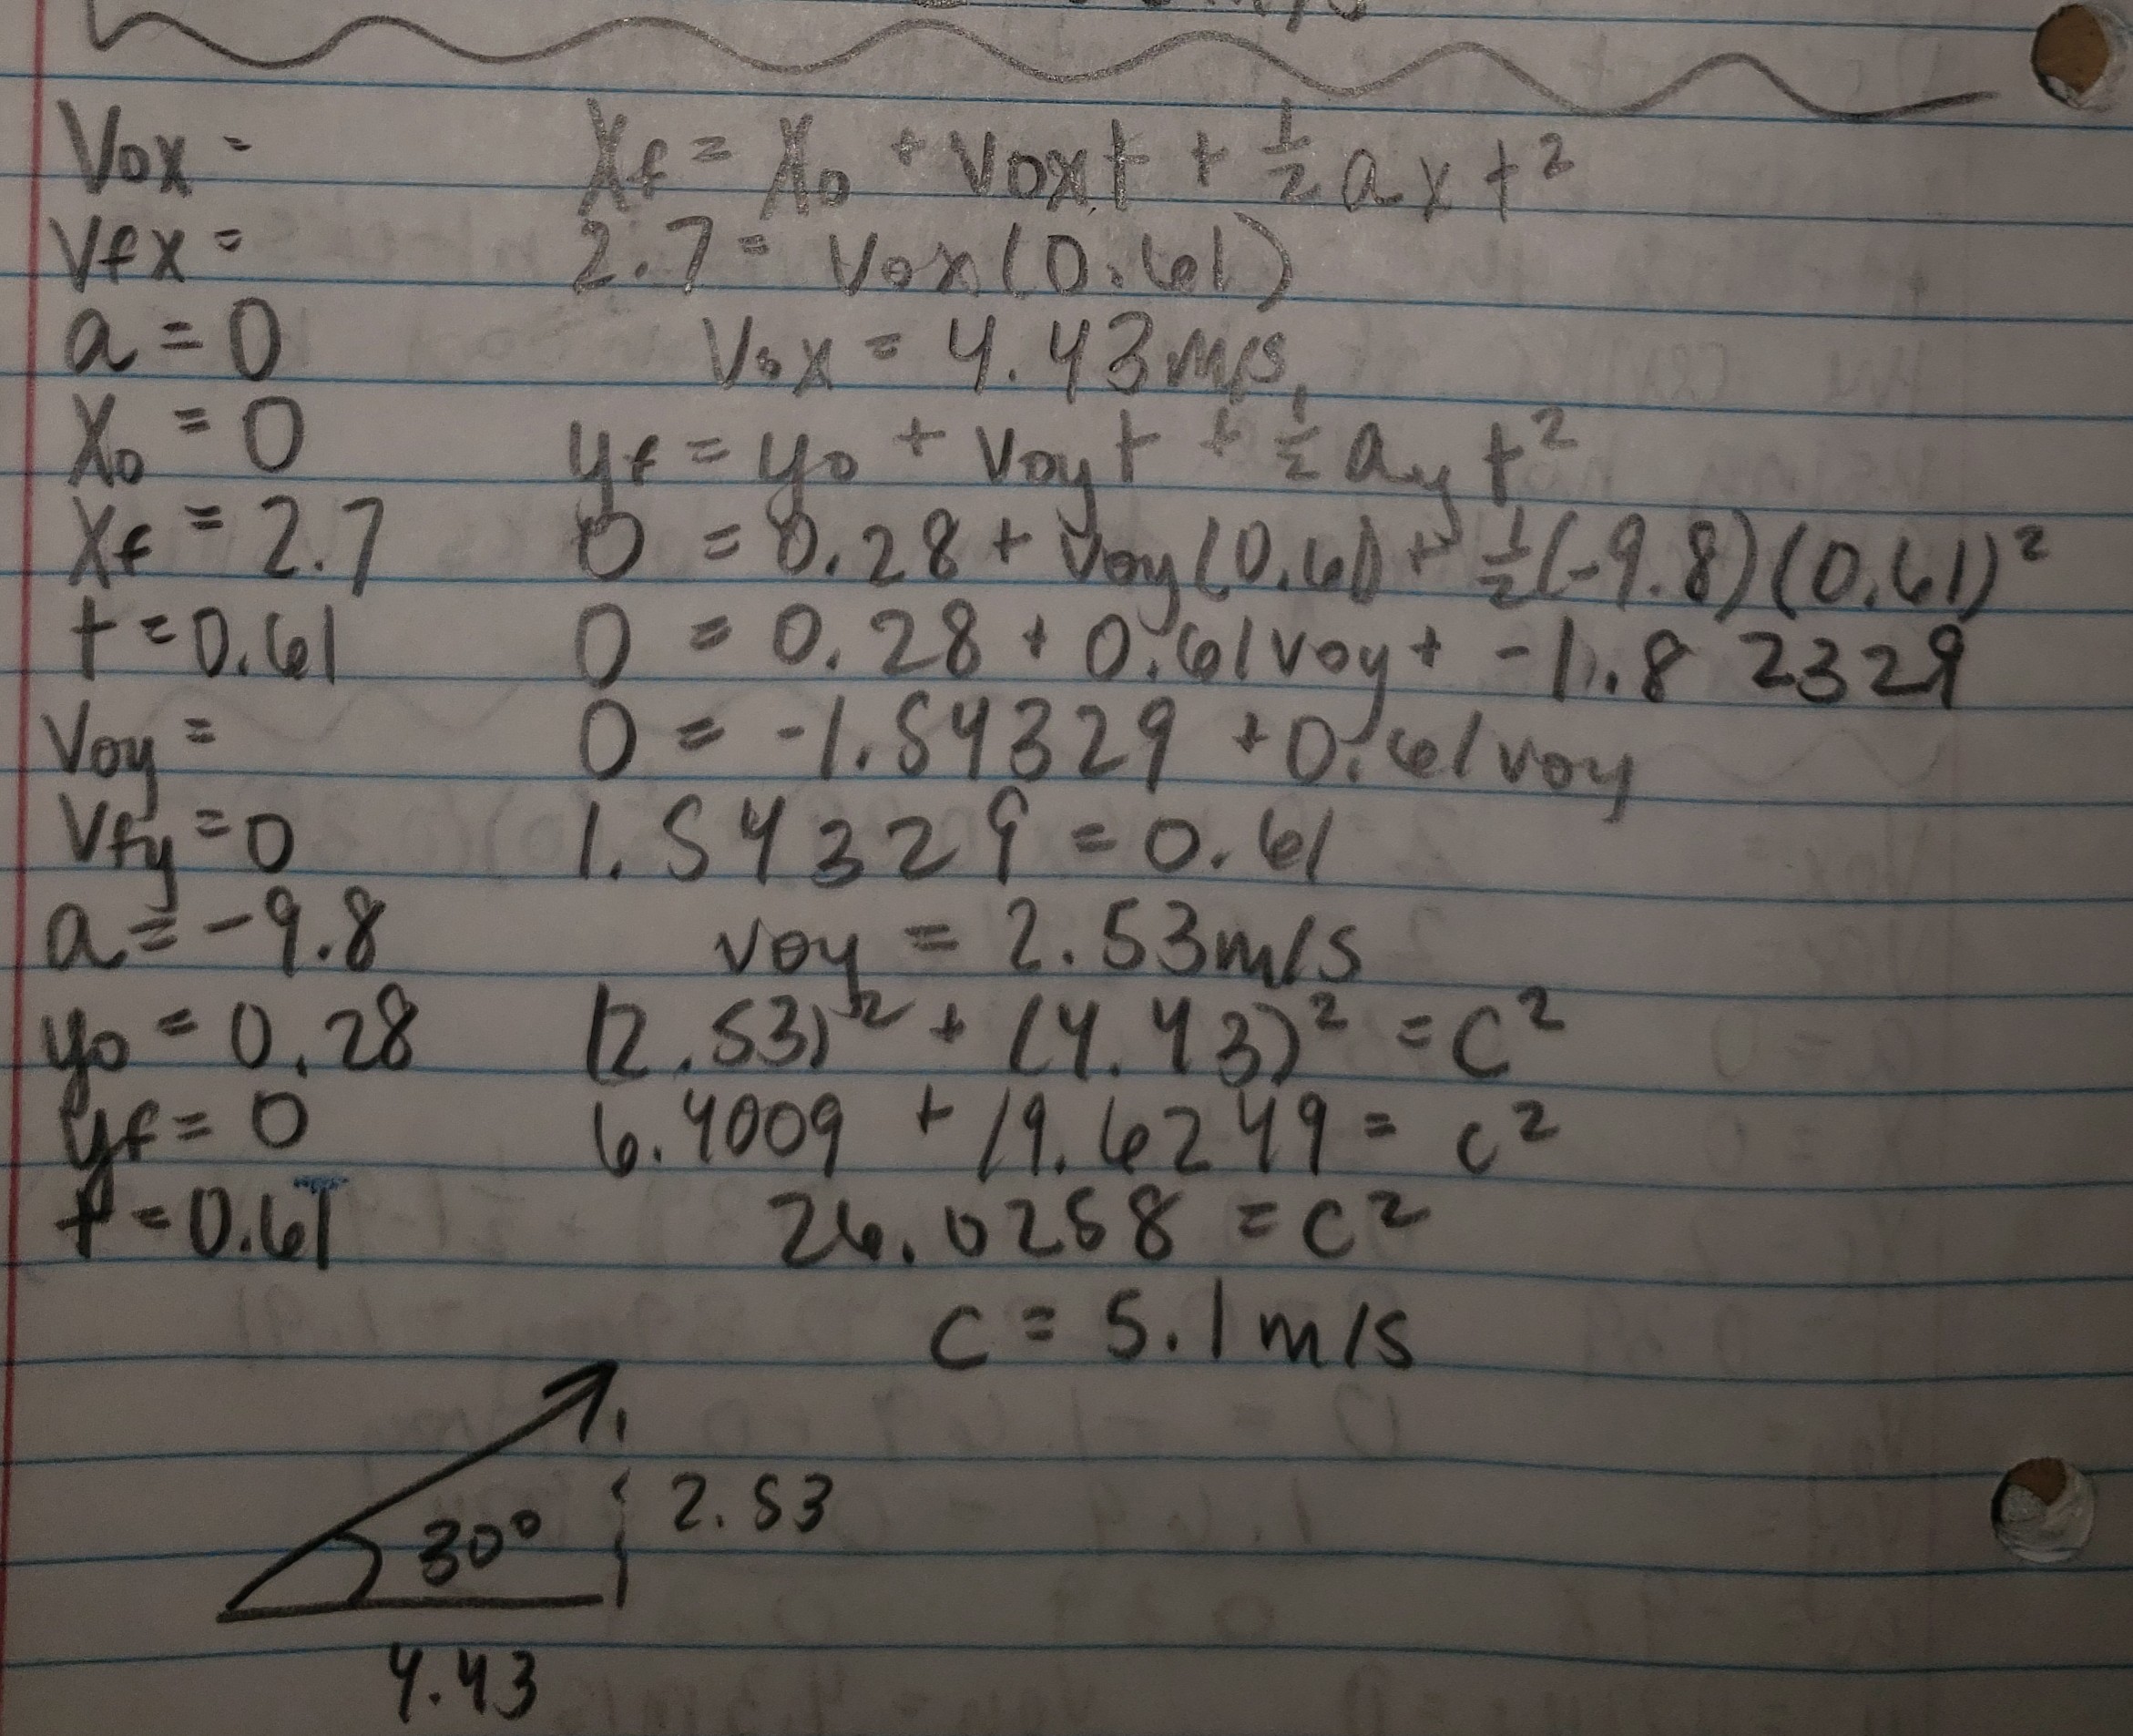 Vox =
Vfx =
a = 0
X₀ = 0
Xf = 2.7
t = 0.61
Voy =
Vfy = 0
a = -9.8
y₀ = 0.28
yf = 0
t = 0.61
Xf = X₀ + Voxt + ½ axt²
2.7 = Vox(0.61)
Vox = 4.43 m/s
yf = y₀ + Voyt + ½ ayt²
0 = 0.28 + Voy(0.61) + ½(-9.8)(0.61)²
0 = 0.28 + 0.61Voy + -1.82329
0 = -1.54329 + 0.61Voy
1.54329 = 0.61
Voy = 2.53m/s
(2.53)² + (4.43)² = C²
6.4009 + 19.6249 = c²
26.0258 = c²
c = 5.1m/s
30°
2.53
4.43